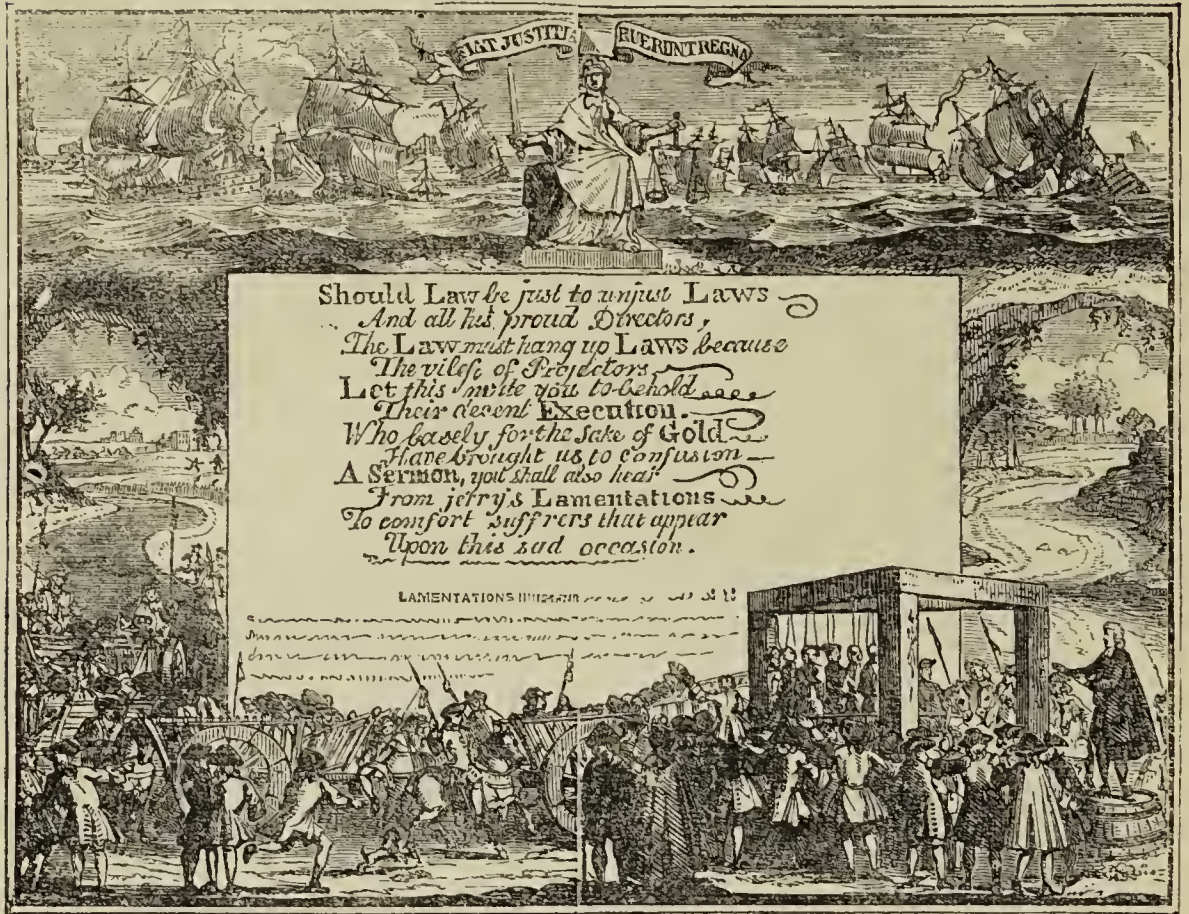 FIAT JUSTITIA RUERINT REGNA
Should Law be just to unjust Laws
And all his proud Directors,
The Law must hang up Laws because
The vilest of Projectors
Let this invite you to behold
Their decent Execution.
Who basely for the sake of Gold
Have brought us to confusion
A Sermon, you shall also hear
From jerry's Lamentations
To comfort suff'rers that appear
Upon this sad occasion.
LAMENTATIONS